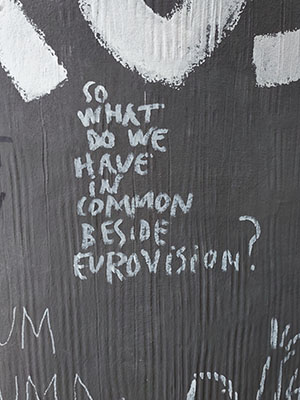 SO
WHAT
DO WE
HAVE
IN
COMMON
BESIDE
EUROVISION?
UM
UMA